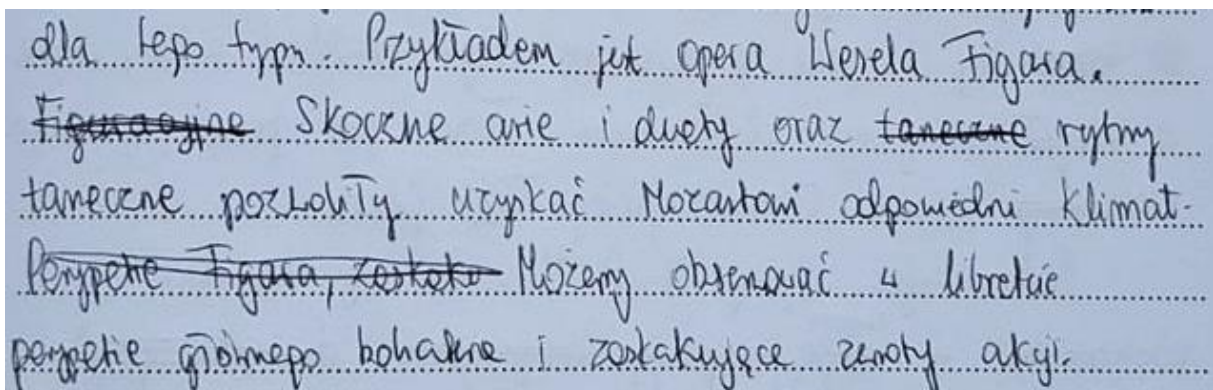 dla tego typu. Przykładem jest opera Wesela Figara.
Figuracyjne Skoczne arie i duety oraz taneczne rytmy
taneczne pozwoliły uzyskać Mozartowi odpowiedni klimat.
Perypetie Figara, zaskoko Możemy obserwować w librecie
perypetie głównego bohatera i zaskakujące zwroty akcji.